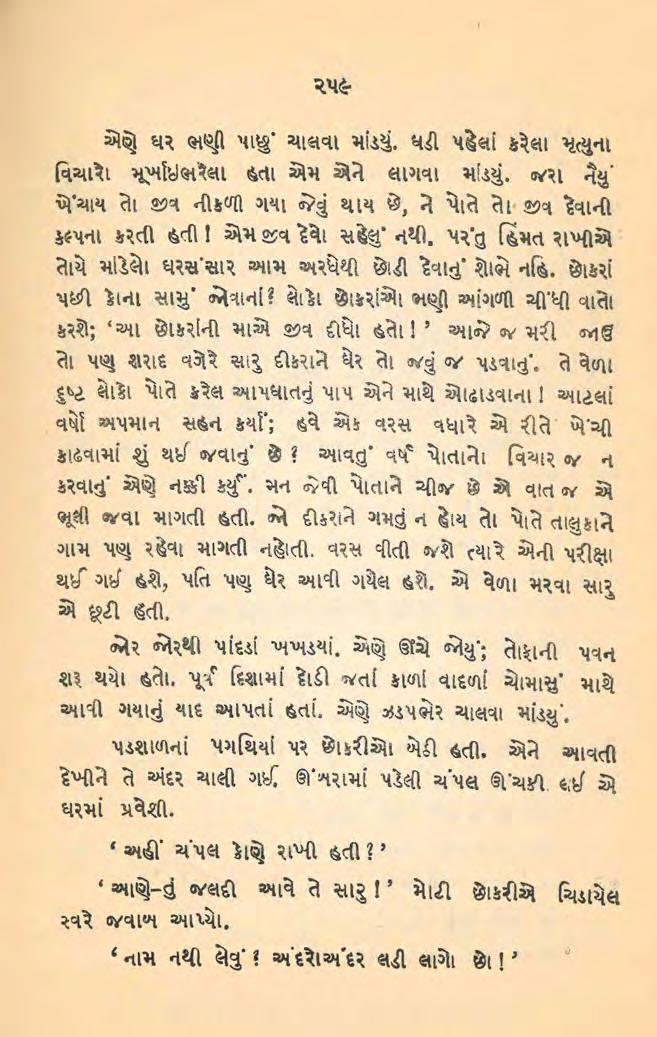 ૨૫૯
એણે ઘર ભણી પાછું ચાલવા માંડ્યું. ઘડી પહેલાં કરેલા મૃત્યુના
વિચારો મૂર્ખાઇભરેલા હતા એમ એને લાગવા માંડ્યું. જરા નૈયું
ખેંચાય તો જીવ નીકળી ગયા જેવું થાય છે, ને પોતે તો જીવ દેવાની
કલ્પના કરતી હતી! એમ જીવ દેવો સહેલું નથી. પરંતુ હિંમત રાખીએ
તોયે માંડેલો ઘરસંસાર આમ અરધેથી છોડી દેવાનું શોભે નહિ. છોકરાં
પછી કોના સામું જોવાનાં? લોકો છોકરાંઓ ભણી આંગળી ચીંધી વાતો
કરશે; ‘આ છોકરાંની માએ જીવ દીધો હતો!’ આજે જ મરી જાઉં
તો પણ શરાદ વગેરે સારુ દીકરાને ઘેર તો જવું જ પડવાનું. તે વેળા
દુષ્ટ લોકો પોતે કરેલ આપઘાતનું પાપ એને માથે ઓઢાડવાના! આટલાં
વર્ષો અપમાન સહન કર્યાં; હવે એક વરસ વધારે એ રીતે ખેંચી
કાઢવામાં શું થઈ જવાનું છે? આવતું વર્ષ પોતાનો વિચાર જ ન
કરવાનું એણે નક્કી કર્યું. મન જેવી પોતાને ચીજ છે એ વાત જ એ
ભૂલી જવા માગતી હતી. જો દીકરાને ગમતું ન હોય તો પોતે તાલુકાને
ગામ પણ રહેવા માગતી નહોતી. વરસ વીતી જશે ત્યારે એની પરીક્ષા
થઈ ગઈ હશે, પતિ પણ ઘેર આવી ગયેલ હશે. એ વેળા મરવા સારુ
એ છૂટી હતી.
જોર જોરથી પાંદડાં ખખડયાં. એણે ઊંચે જોયું; તોફાની પવન
શરૂ થયો હતો. પૂર્વ દિશામાં દોડી જતાં કાળાં વાદળાં ચોમાસું માથે
આવી ગયાનું યાદ આપતાં હતાં. એણે ઝડપભેર ચાલવા માંડયું.
પડશાળનાં પગથિયાં પર છોકરીઓ બેઠી હતી. એને આવતી
દેખીને તે અંદર ચાલી ગઈ. ઊંબરામાં પડેલી ચંપલ ઊંચકી લઈ એ
ઘરમાં પ્રવેશી.
‘અહીં ચંપલ કોણે રાખી હતી?’
‘આણે–તું જલદી આવે તે સારુ!’ મોટી છોકરીએ ચિડાયેલ
સ્વરે જવાબ આપ્યો.
‘નામ નથી લેવું? અંદરોઅંદર લડી લાગો છો!’